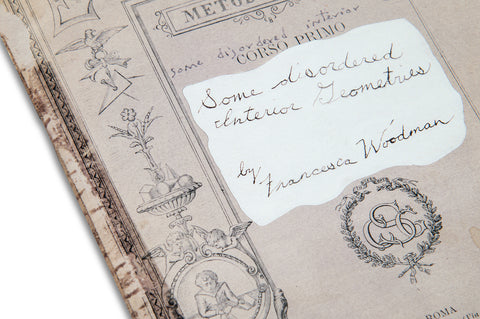 METO
some disordered interior
CORSO PRIMO
Some disordered
Interior Geometries
by
Francesca Woodman
ROMA